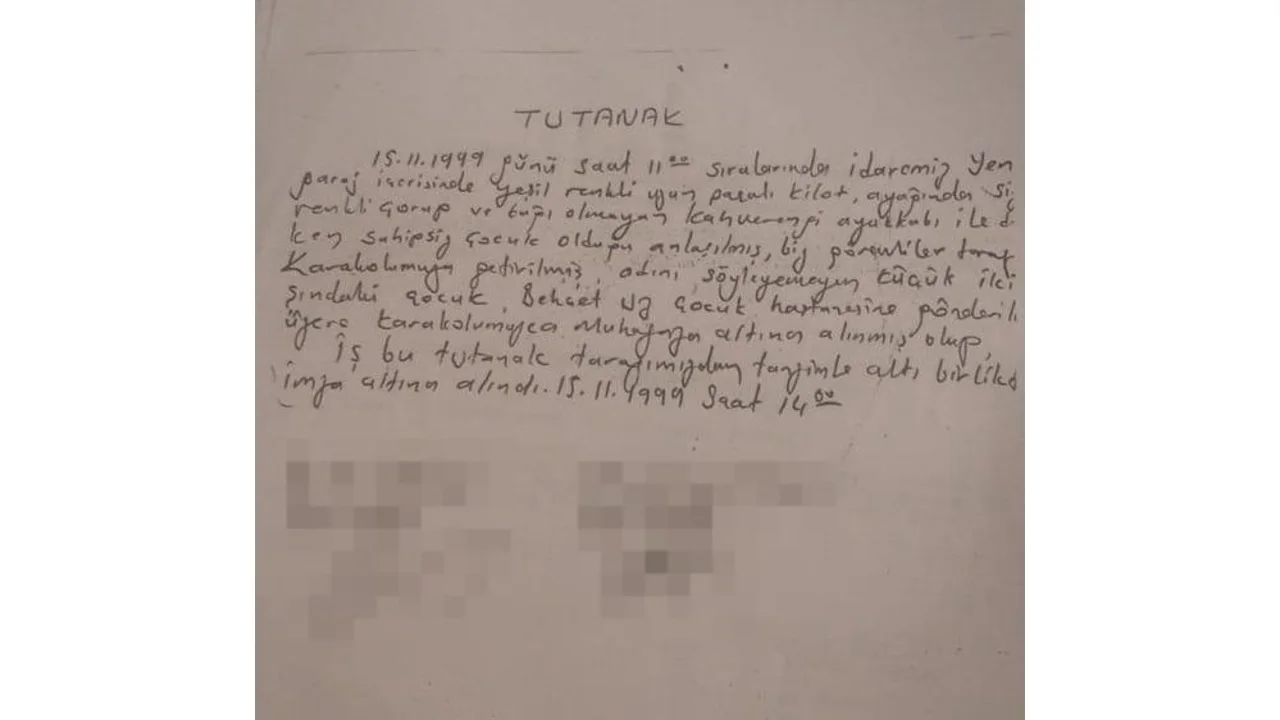 TUTANAK
15.11.1999 günü saat 11⁰⁰ sıralarında idaremiz Yen
garaj içerisinde yeşil renkli uzun paçalı kilot, ayağında si
renkli çorap ve bağı olmayan kahverengi ayakkabı ile
ken sahipsiz çocuk olduğu anlaşılmış, biz görevliler taraf
Karakolumuza getirilmiş, adını söyleyemeyen küçük iki
sındaki çocuk, Behçet Uz Çocuk hastanesine gönderil
üzere karakolumuzca Muhafaza altına alınmış olup
İş bu tutanak tarafımızdan tanzimle altı birlikt
imza altına alındı. 15.11.1999 Saat 14⁰⁰